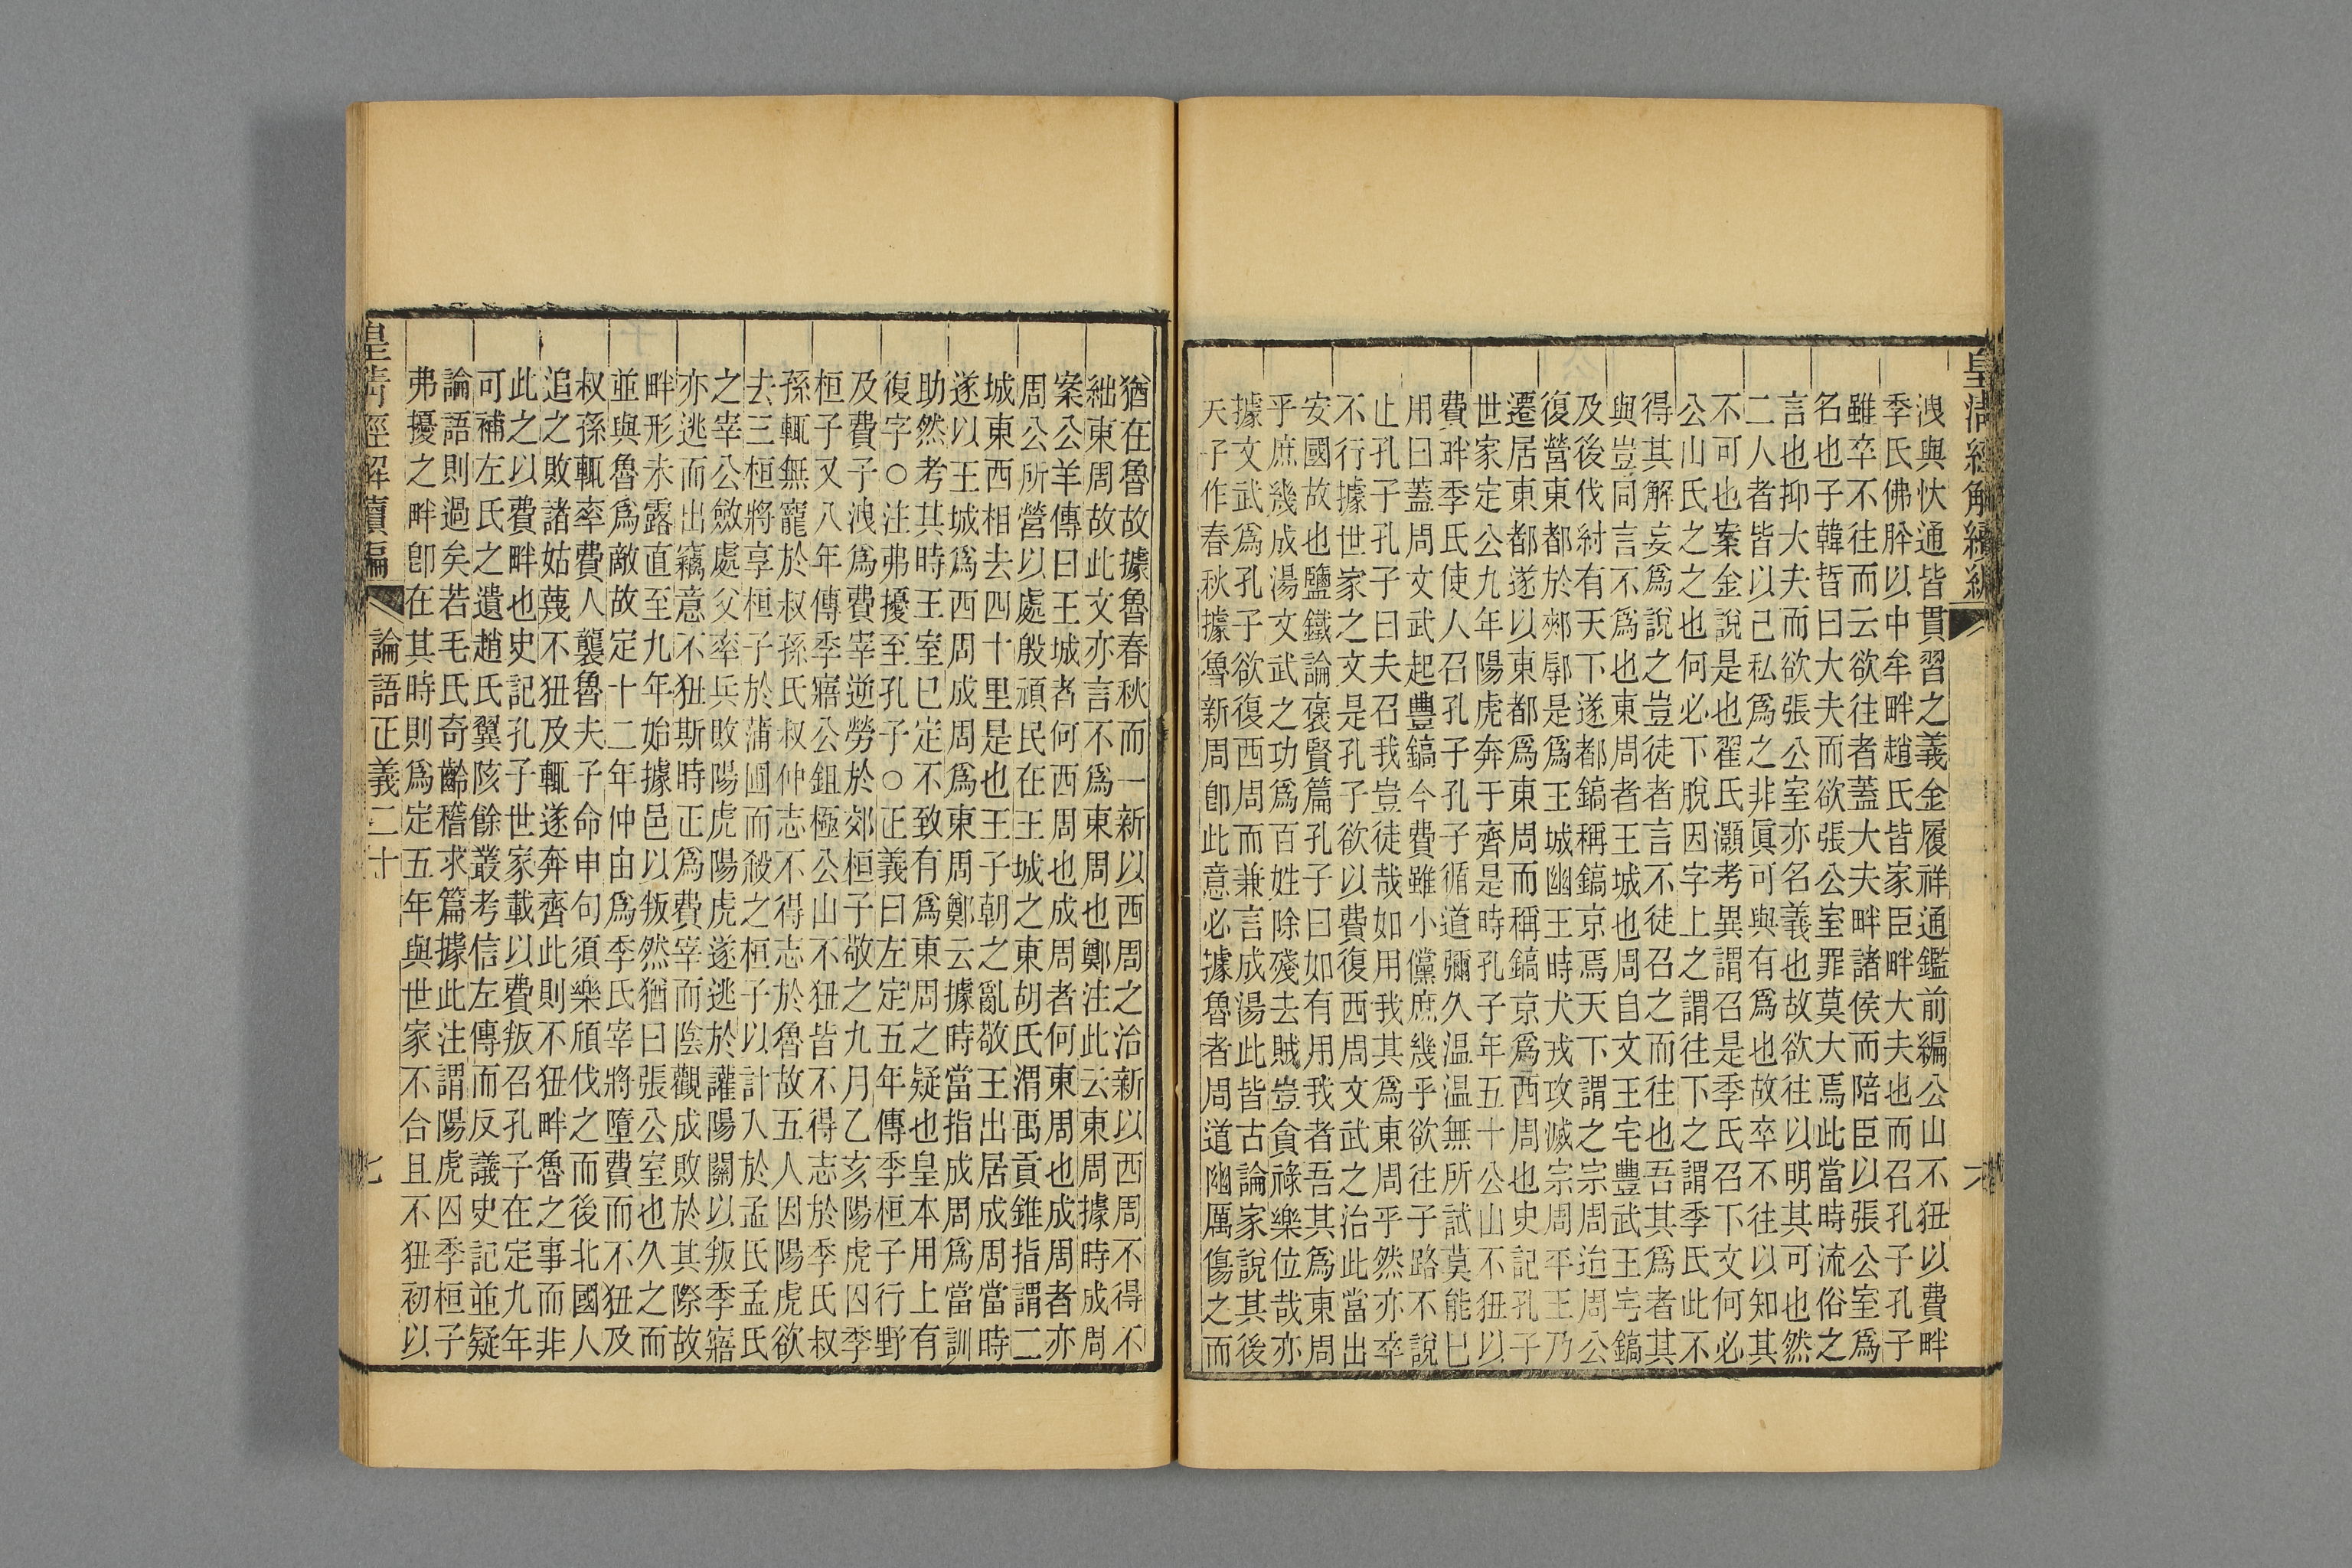 皇清經解續編
六
洩與忕通皆貫習之義金履祥通鑑前編公山不狃以費畔
季氏佛肸以中牟畔趙氏皆家臣畔大夫也而召孔子孔子
雖卒不往而云欲往者蓋大夫畔諸侯而陪臣以張公室爲
名也子韓晳曰大夫而欲張公室罪莫大焉此當時流俗之
言也抑大夫而欲張公室亦名義也故欲往以明其可也然
二人者皆以己私爲之非眞可與有爲也故卒不往以知其
不可也案金說是也翟氏灝考異謂召是季氏召下文何必
公山氏之之也何必下脫因字上之謂往下之謂季氏此不
得其解妄爲說之豈徒者言不徒召之而往也吾其爲者其
與豈同言不爲也東周者王城也周自文王宅豐武王宅鎬
及後伐紂有天下遂都鎬稱鎬京焉天下謂之宗周迨周公
復營東都於郟鄏是爲王城幽王時犬戎攻滅宗周平王乃
遷居東都遂以東都爲東周而稱鎬京爲西周也史記孔子
世家定公九年陽虎奔于齊是時孔子年五十公山不狃以
費畔季氏使人召孔子孔子循道彌久溫溫無所試莫能已
用曰蓋周文武起豐鎬今費雖小儻庶幾乎欲往子路不說
止孔子孔子曰夫召我豈徒哉如用我其爲東周乎然亦卒
不行據世家之文是孔子欲以費復西周文武之治此當出
安國故也鹽鐵論褒賢篇孔子曰如有用我者吾其爲東周
乎庶幾成湯文武之功爲百姓除殘去賊豈貪祿樂位哉亦
據文武爲孔子欲復西周而兼言成湯此皆古論家說其後
天子作春秋據魯新周卽此意必據魯者周道幽厲傷之而
猶在魯故據魯春秋而一新以西周之治新以西周不得不
絀東周故此文亦言不爲東周也鄭注此云東周據時成周
案公羊傳曰王城者何西周也成周者何東周也成周者亦
周公所營以處殷頑民在王城之東胡氏渭禹貢錐指謂二
城東西相去四十里是也王子朝之亂敬王出居成周當時
遂以王城爲西周成周爲東周鄭云據時當指成周爲當訓
助然考其時王室已定不致有爲東周之疑也皇本用上有
復字○注弗擾至孔子○正義曰左定五年傳季桓子行野
及費子洩爲費宰逆勞於郊桓子敬之九月乙亥陽虎囚季
桓子又八年傳季寤公鉏極公山不狃皆不得志於季氏叔
孫輒無寵於叔孫氏叔仲志不得志於魯故五人因陽虎欲
去三桓將享桓子於蒲圃而殺之桓子以計入於孟氏孟氏
之宰公斂處父率兵敗陽虎陽虎遂逃於讙陽關以叛季寤
亦逃而出竊意不狃斯時正爲費宰而陰觀成敗於其際故
畔形未露直至九年始據邑以叛然猶曰張公室也久之而
並與魯爲敵故定十二年仲由爲季氏宰將墮費而不狃及
叔孫輒率費人襲魯夫子命申句須樂頎伐之而後北國人
追之敗諸姑蔑不狃及輒遂奔齊此則不狃畔魯之事而非
此之以費畔也史記孔子世家載以費叛召孔子在定九年
可補左氏之遺趙氏翼陔餘叢考信左傳而反議史記並疑
論語則過矣若毛氏奇齡稽求篇據此注謂陽虎囚季桓子
弗擾之畔卽在其時則爲定五年與世家不合且不狃初以
皇清經解續編
論語正義二十
七